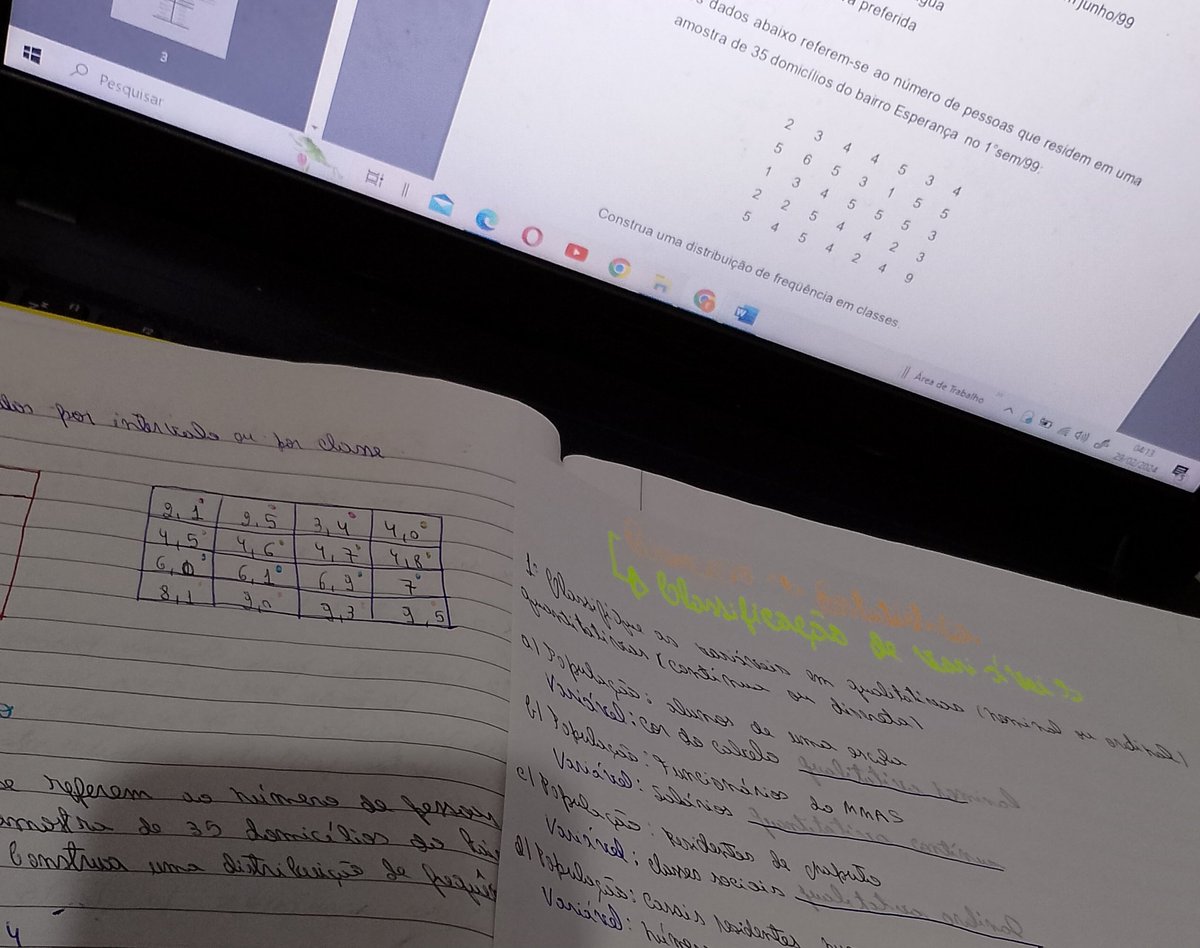 gua
a preferida
junho/99
dados abaixo referem-se ao número de pessoas que residem em uma
amostra de 35 domicílios do bairro Esperança no 1°sem/99:
2 3 4 4 5 3 4
5 6 5 3 1 5 5
1 3 4 5 5 5 3
2 2 5 4 4 2 3
5 4 5 4 2 4 9
Construa uma distribuição de freqüência em classes.
3
Pesquisar
Área de Trabalho
04:13
29/02/2024
por intervalo ou por classe
2,1 2,5 3,4 4,0
4,5 4,6 4,7 4,8
6,0 6,1 6,9 7
8,1 9,0 9,3 9,5
referem ao número de pessoas
amostra de 35 domicílios do
Construa uma distribuição de
4
Classificação de
1- Classifique as variáveis em qualitativas (nominal ou ordinal)
quantitativas (contínua ou discreta)
a) População: alunos de uma escola
Variável: cor do cabelo
b) População: Funcionários do MMAS
Variável: Salários
c) População: Residentes de
Variável: classes sociais
d) População: casais residentes
Variável: